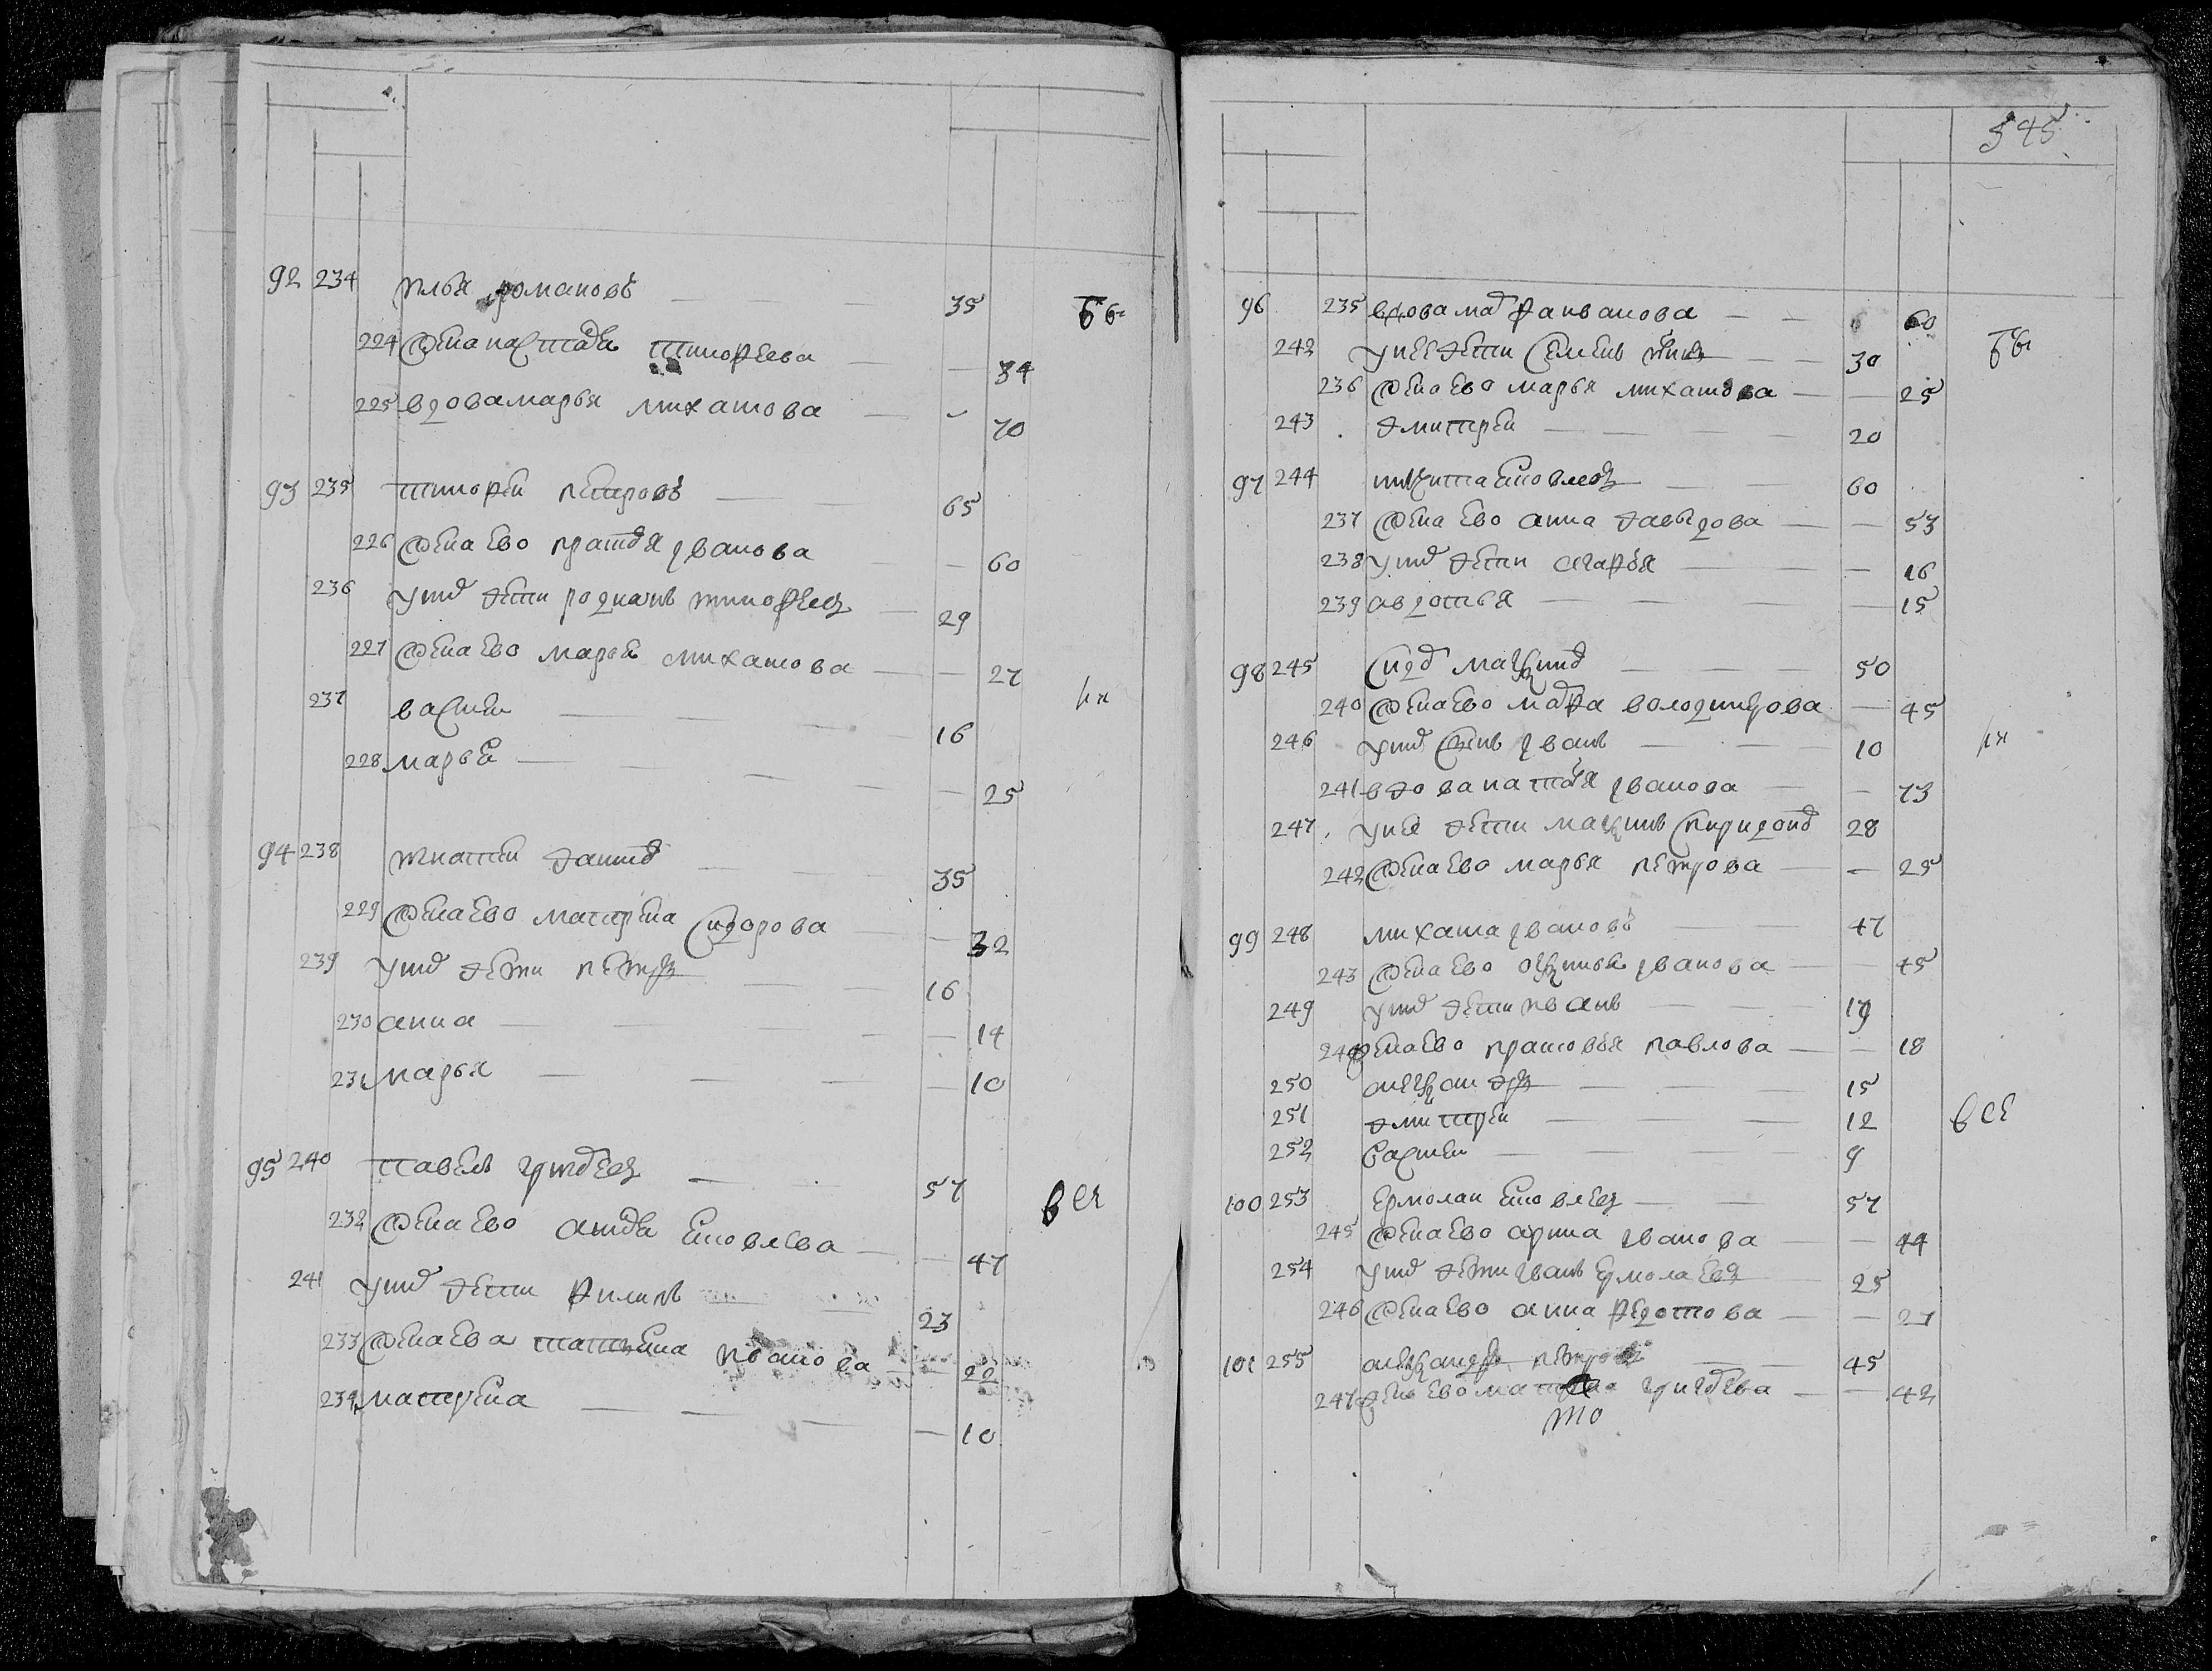 92 234 илья романовъ 35 Бы
224 жена настасья тимофеева 34
225 вдова марья михаилова 70
93 235 тимофеи петровъ 65
226 жена ево прасковья иванова 60
236 у него дети родионъ тимофеевъ 29
227 жена ево марья михаилова 27
237 василеи 16 ли
228 марья 25
94 238 игнатеи 35
229 жена ево матрена сидорова 32
239 у него дети петръ 16
230 анна 14
231 марья 10
95 240 павелъ григорьевъ 57 все
232 жена ево яковлева 47
241 у него дети филипъ 23
233 жена ева татьяна иванова 22
234 матрена 10
545
96 235 вдова марфа иванова 60
242 у нее дети семенъ 30 бы
236 жена ево марья михаилова 25
243 дмитреи 20
97 244 никита яковлевъ 60
237 жена ево анна давыдова 53
238 у него дети агафья 16
239 авдотья 15
98 245 максимовъ 50
240 жена ево марфа володимерова 45
246 у него сынъ иванъ 10 ли
241 вдова наталья иванова 73
247 у нее дети максимъ спиридоновъ 28
242 жена ево марья петрова 25
99 248 михаила ивановъ 47
243 жена ево аксинья иванова 45
249 у него дети иванъ 19
244 жена ево прасковья павлова 18
250 александръ 15
251 дмитреи 12 все
252 василеи 9
100 253 ермолаи яковлевъ 57
245 жена ево арина иванова 44
254 у него дети иванъ ермолаевъ 25
246 жена ево анна федотова 27
101 255 александръ петровъ 45
247 жена ево матрена григорьева 42
то